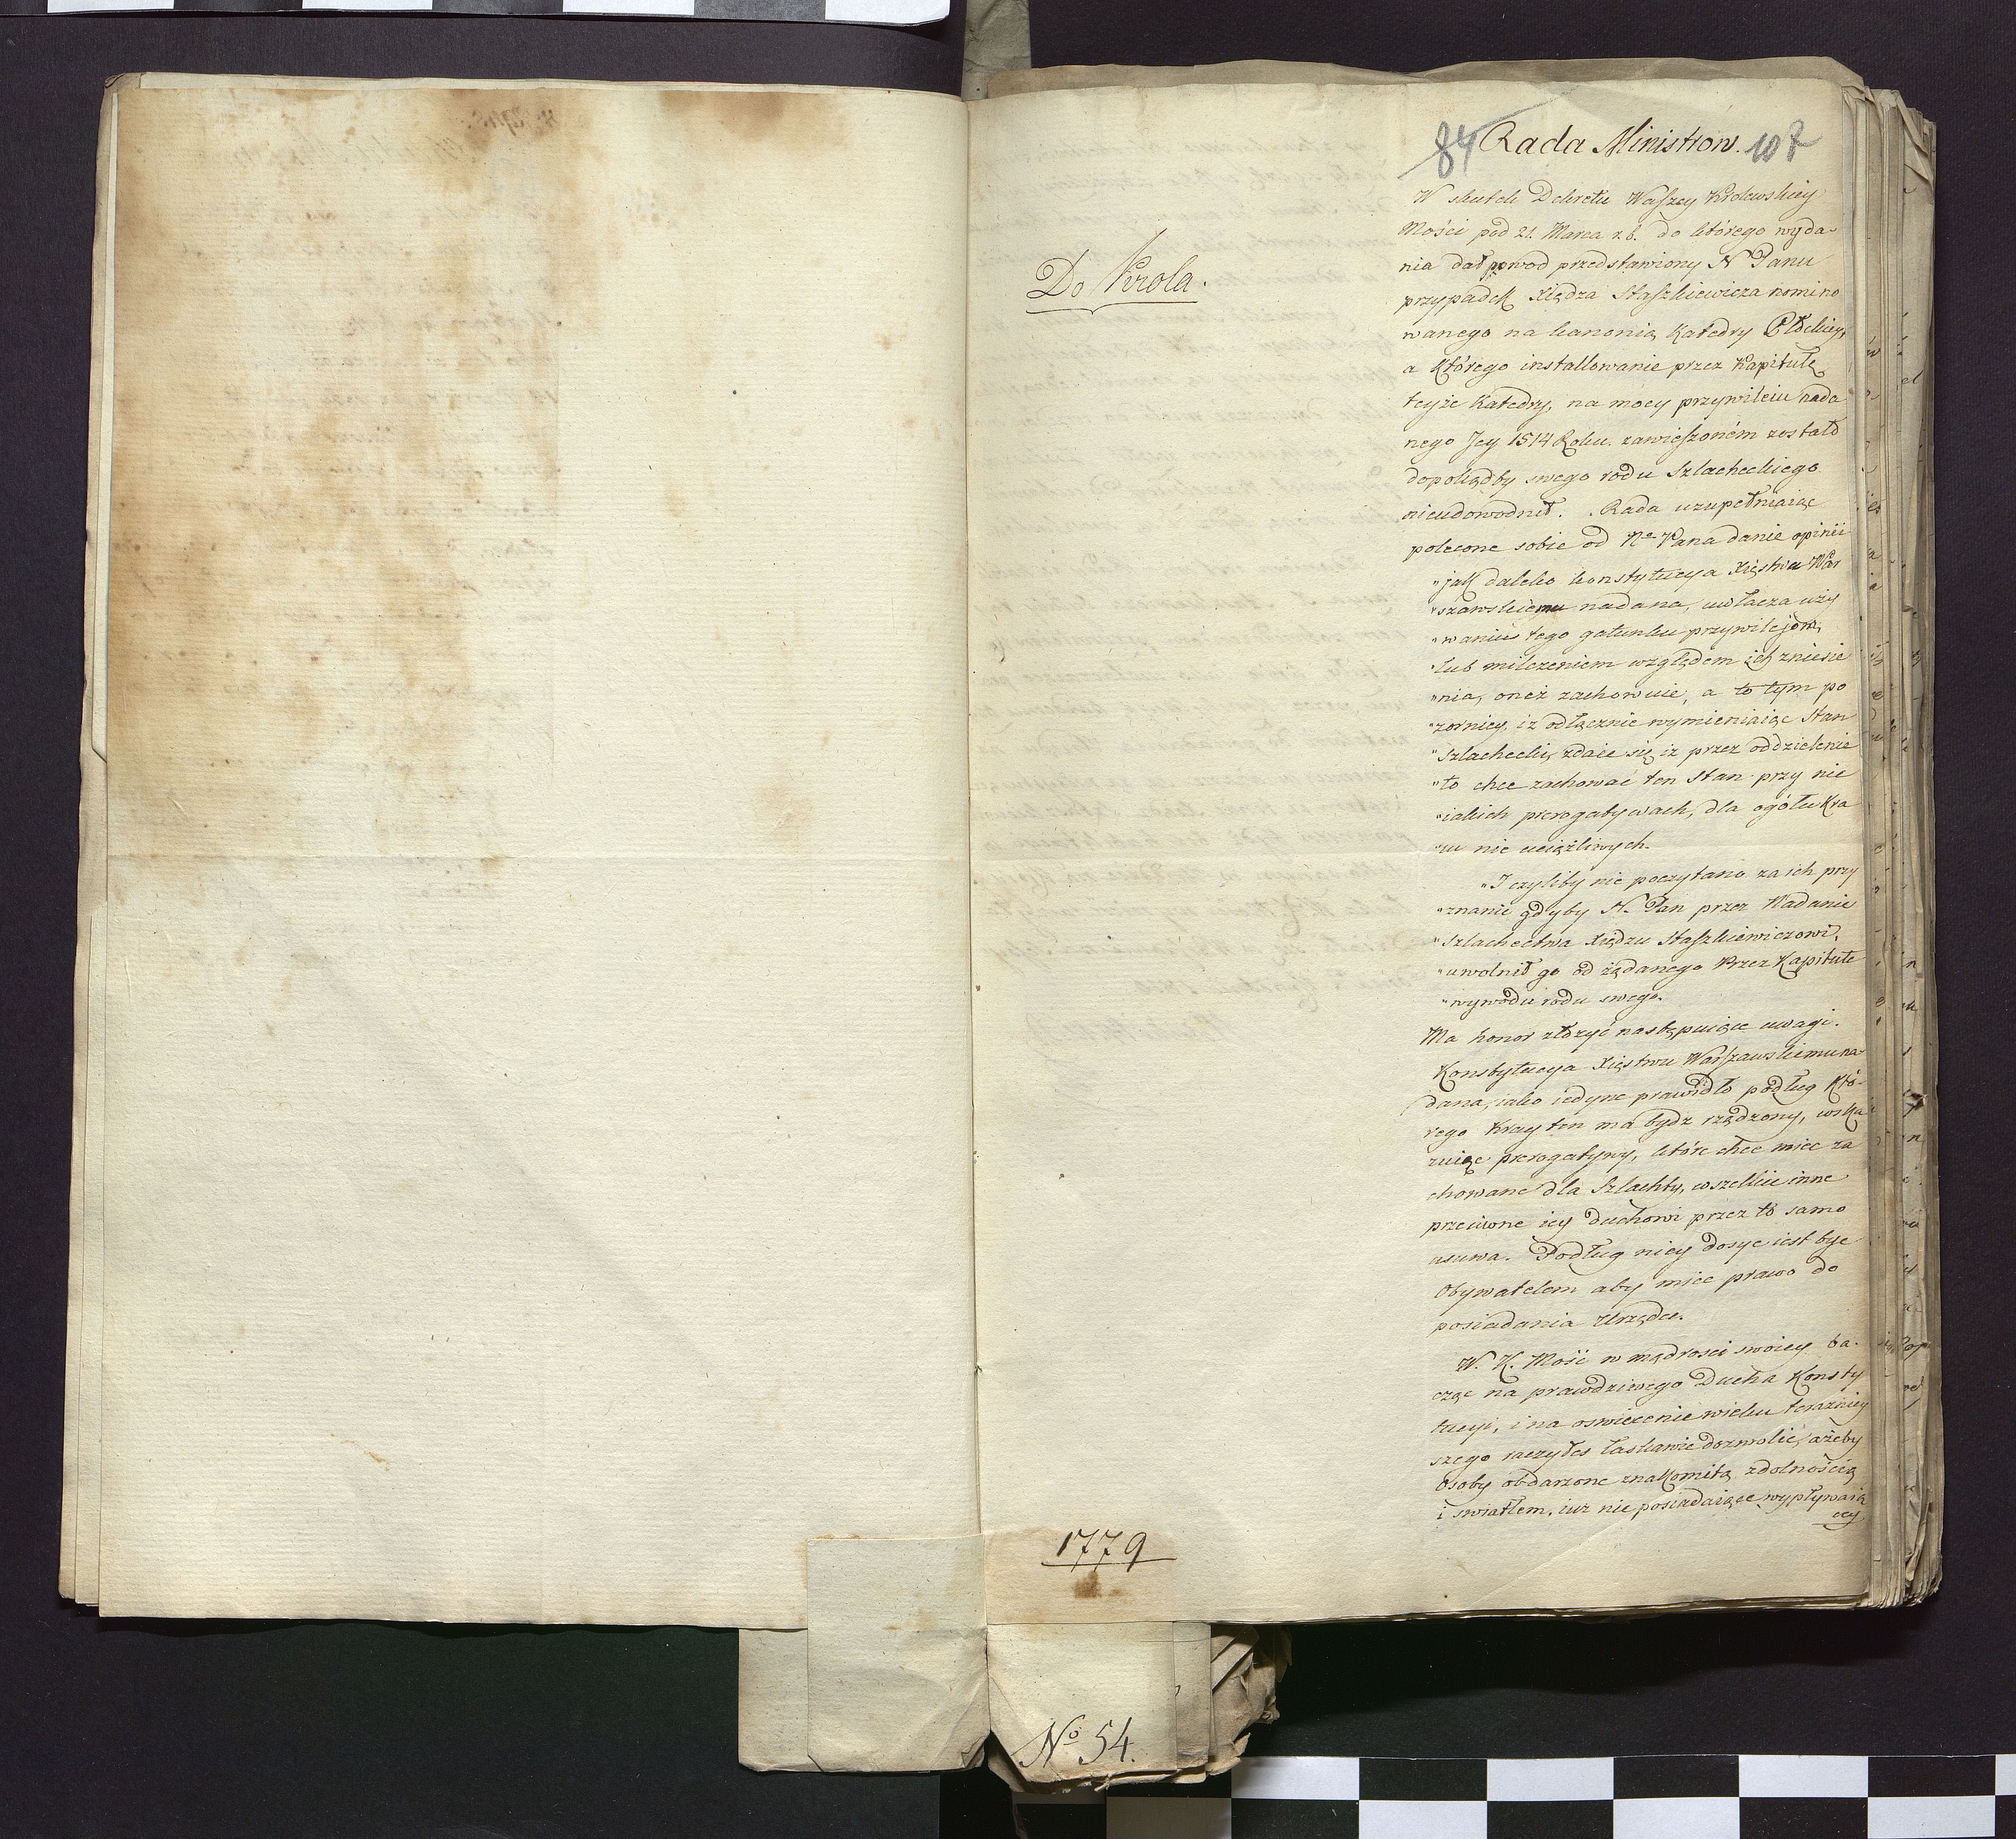 84 Rada Ministrow. 107
Do Krola.
W skutek Dekretu Waszey Krolewskiey
Mości pod 21. Marca r.b. do którego wyda-
nia dał powod przedstawiony N Panu
przypadek Xiędza Staszkiewicza nomino
wanego na kanonią Katedry Płockiey,
a którego installowanie przez Kapitułę
teyże Katedry, na mocy przywileiu nada
nego Jey 1514 Roku. zawieszoném zostało
dopokądby swego rodu Szlacheckiego
nieudowodnił. Rada uzupełniaiąc
polecone sobie od Nº Pana danie opinii
"jak daleko konstytucya Xięstwu War
"szawskiemu nadana, uwłacza uży
"waniu tego gatunku przywilejom,
"lub milczeniem względem ich zniesie
"nia, oneż zachowuie, a to tym po
"zorniey, iz odłącznie wymieniaiąc Stan
"Szlachecki, zdaie się iz przez oddzielenie
"to chce zachować ten Stan przy nie
"iakich prerogatywach, dla ogółu Kra
"iu nie uciążliwych.
"I czyliby nie poczytano za ich przy
"znanie gdyby N. Pan przez Nadanie
"Szlachectwa Xiędzu Staszkiewiczowi,
"uwolnił go od żądanego Przez Kapitułe
"wywodu rodu swego.
Ma honor złożyć następuiące uwagi.
Konstytucya Xięstwu Warszawskiemu na-
dana, iako iedyne prawidło podług któ-
rego Kray ten ma bydz rządzony, wska
zuiąc prerogatywy, które chce miec za
chowane dla Szlachty, wszelkie inne
przeciwne iey duchowi przez to samo
usuwa. Podług niey dosyc iest byc
Obywatelem aby miec prawo do
posiadania Urzędu.
W. K. Mość w mądrosci swoiey ba-
cząc na prawdziwego Ducha Konsty
tucyi, i na oswiecenie wieku teraźniey
szego raczyłes łaskawie dozwolić, ażeby
Osoby obdarzone znakomitą zdolnością
i swiatłem, iuz nie posiadaiące wypływaią
cey
1779
Nº 54.